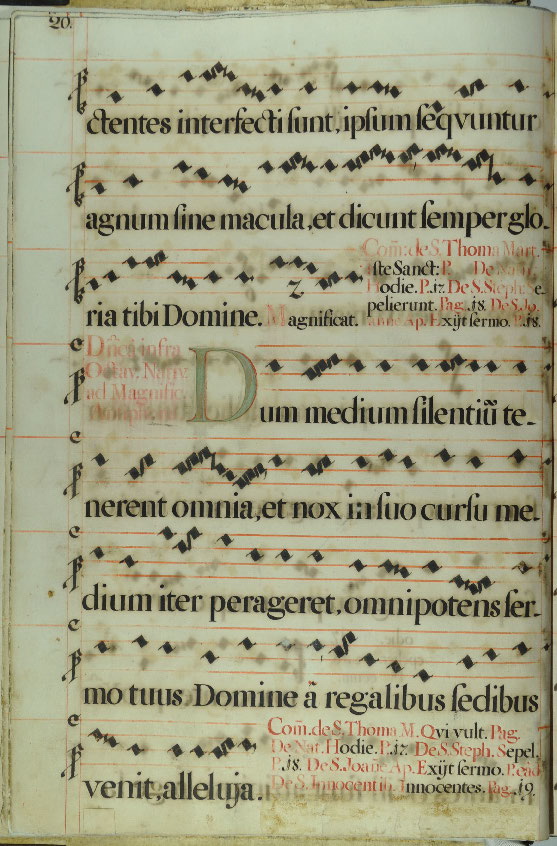 20.
ctentes interfecti sunt, ipsum seqvuntur
agnum sine macula, et dicunt semper glo-
Com̃: de S. Thoma Mart.
iste Sanct: P. De S.
Hodie. P. 17. De S. Steph. e.
pelierunt. Pag. 18. De S. Jo.
ria tibi Domine. Magnificat. Ap. Exijt sermo. P. 18.
Dñica infra
Octav. Nativ.
ad Magnific.
Dum medium silentiũ te-
nerent omnia, et nox in suo cursu me-
dium iter perageret, omnipotens ser-
mo tuus Domine à regalibus sedibus
Com̃. de S. Thoma M. Qvi vult. Pag.
De Nat. Hodie. P. 17. De S. Steph. Sepel.
P. 18. De S. Joañe Ap. Exijt sermo. P. eâd
venit, alleluja. De S. Innocentio. Innocentes. Pag. 19.